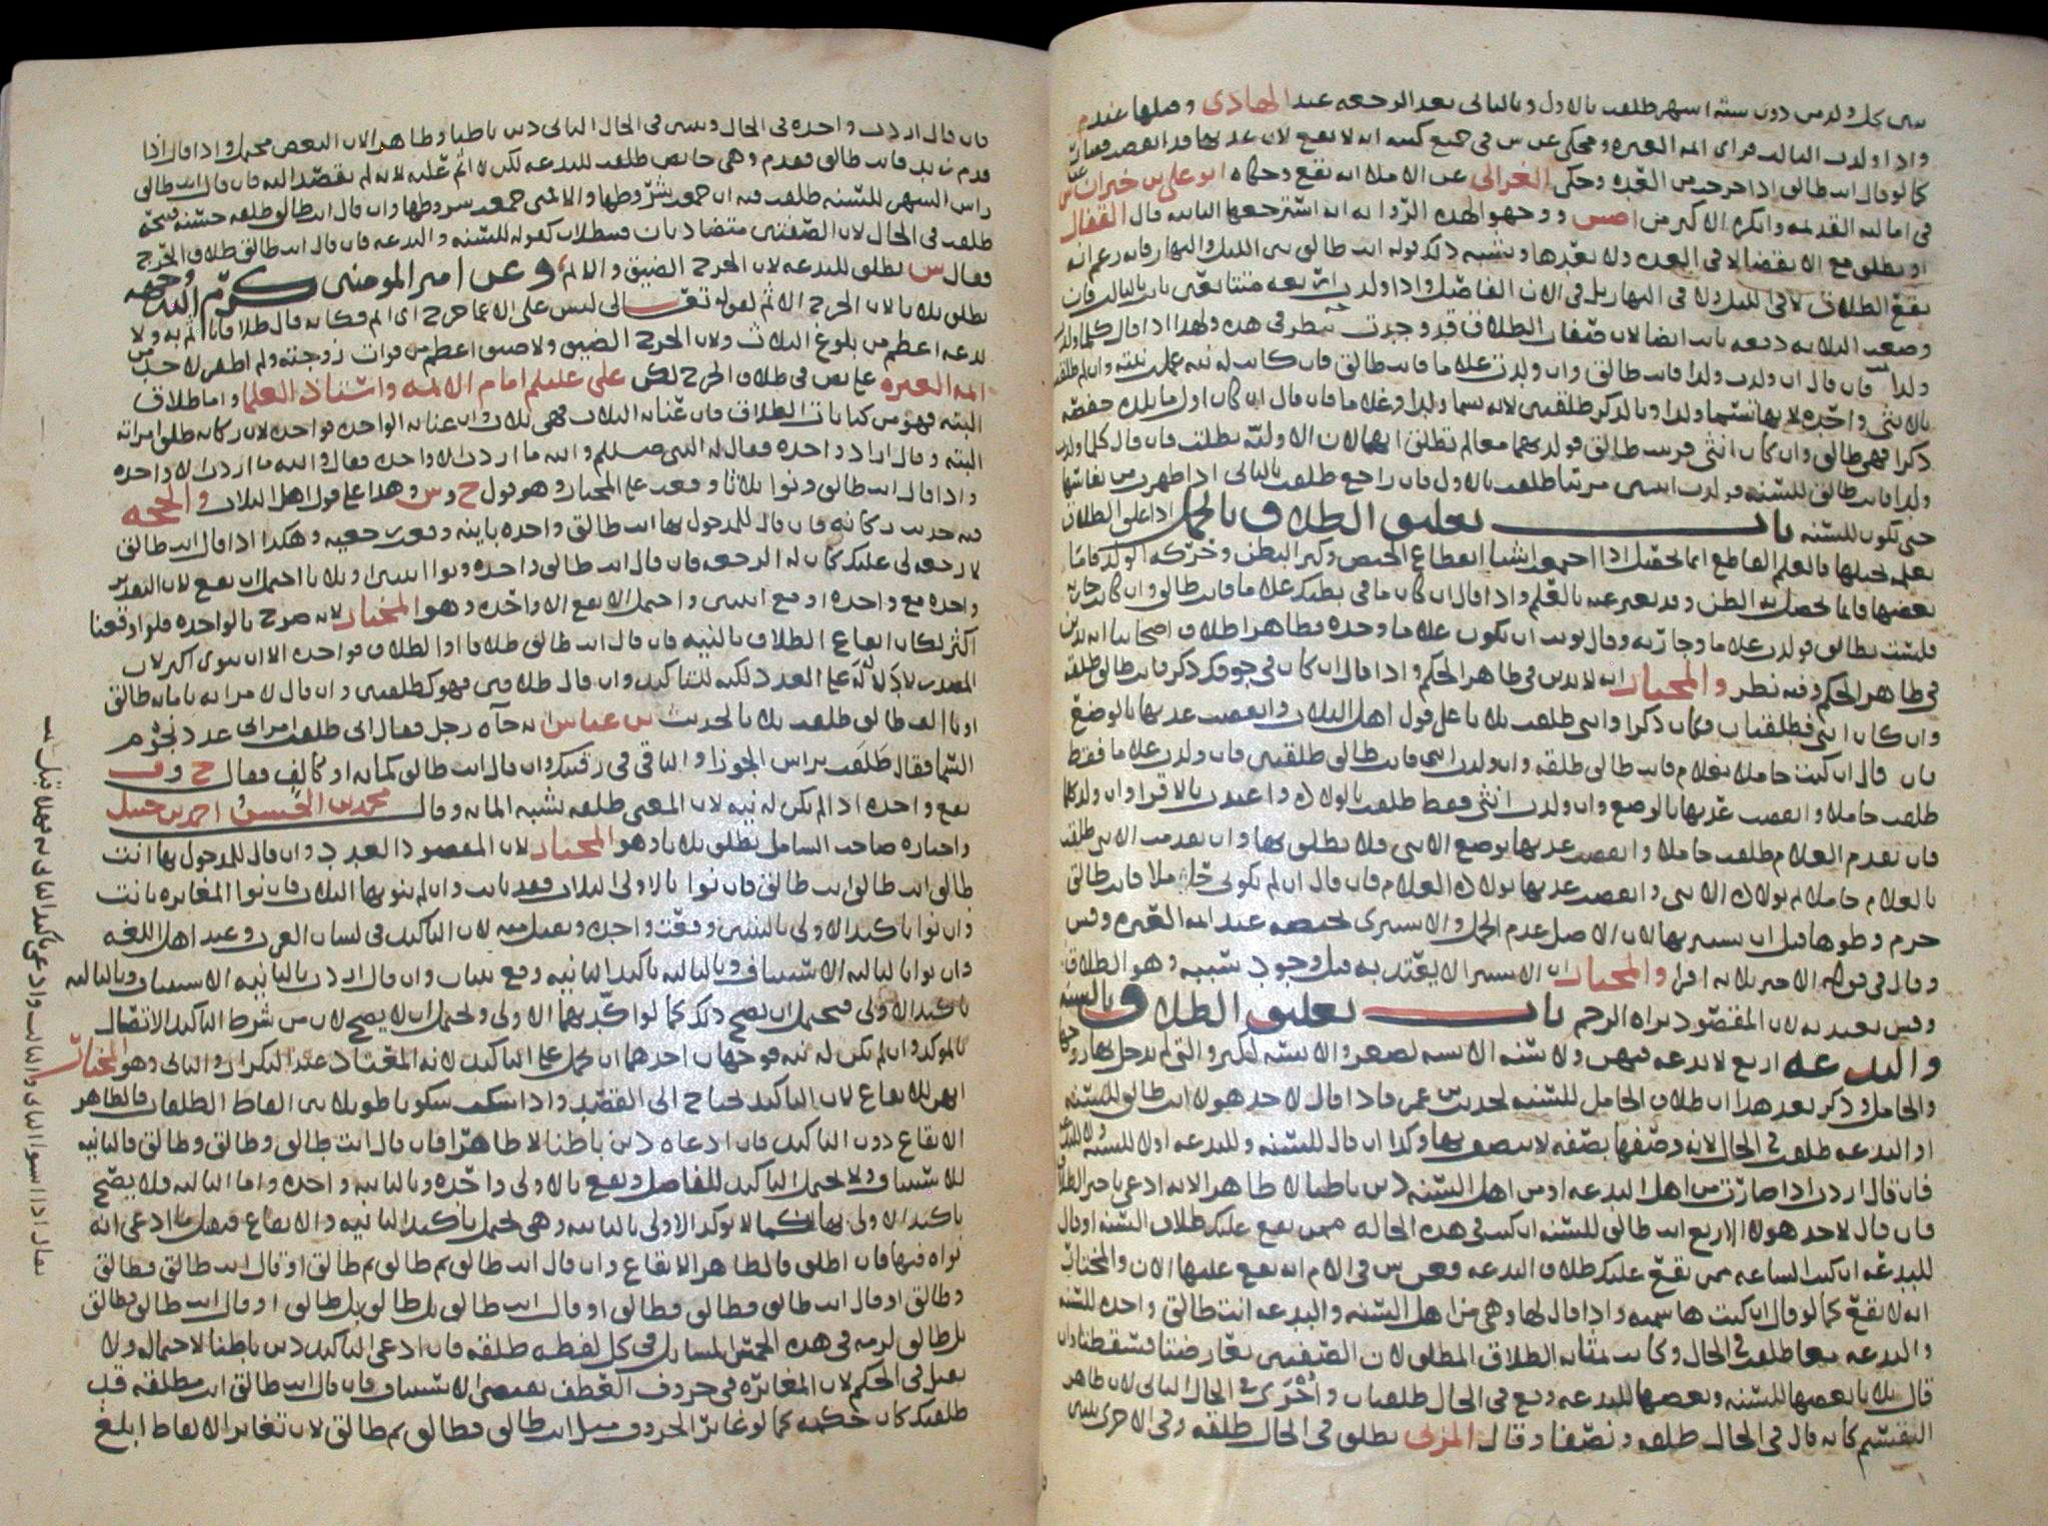 بين كل ولدين دون ستة اشهر طلقت بالاول وبالثاني بعد الرجعه عند الهادي وقبلها عندم
واذا ولدت الثالث فراى ائمه العتره ومحكي عن س في جميع كتبه انه لا يقع لان عدتها قد انقضت فصارت
كما لو قال انت طالق اذا خرجت من العده وحكى الغزالي عن الاملا انه يقع وحكاه ابو علي بن خيران عن س
في اماليه القديمه وانكره الاكثر من اصس ووجهوا لهذه الروايه انه استرجعها الثانيه قال القفال
او يطلق مع الانقضا لا في العده ولا بعدها ويشبه ذلك قوله انت طالق بين الليل والنهار فانه زعم انه
يقع الطلاق لا في الليل ولا في النهار بل في الان الفاصل واذا ولدت اربعه متتابعين بانت بالثالث فان
وضعت الثلاثه دفعه بانت ايضا لان صفات الطلاق قد وجدت شطر في هذه ولهذا اذا قال كلما ولدت
ولدا فان قال ان ولدت ولدا فانت طالق وان ولدت غلاما فانت طالق فان كانت له نيه عمل بنيته وان لم طلقت
بالانثى واحده لانها تسما ولدا وبالذكر طلقتين لانه يسما ولدا وغلاما فان قال ان كان اول ما تلده حفصه
ذكرا فهي طالق وان كان انثى فزينب طالق فولدتهما معا لم تطلق ايهما لان الاوليه بطلت فان قال كلما ولدت
ولدا فانت طالق للسنه فولدت اثنين مرتبا طلقت بالاول فان راجع طلقت بالثاني اذا طهرت من نفاسها
حتى تكون للسنه باب تعليق الطلاق بالحمل اذا علق الطلاق
بعلمه بحبلها فالعلم القاطع انما يحصل اذا اجتمعت اشيا انقطاع الحيض وكبر البطن وحركه الولد فاما
بعضها فانما يحصل به الظن وقد يعبر عنه بالعلم واذا قال ان كان ما في بطنك غلاما فانت طالق وان كان جاريه
فلست بطالق فولدت غلاما وجاريه وقال نويت ان يكون غلاما وحده فظاهر اطلاق اصحابنا انه يدين
في ظاهر الحكم وفيه نظر والمختار انه لا يدين في ظاهر الحكم واذا قال ان كان في جوفك ذكر فانت طالق طلقه
وان كان انثى فطلقتان فكان ذكرا وانثى طلقت ثلاثا على قول اهل الثلاث وانقضت عدتها بالوضع
فان قال ان كنت حاملا بغلام فانت طالق طلقه وان ولدت انثى فانت طالق طلقتين فان ولدت غلاما فقط
طلقت حاملا وانقضت عدتها بالوضع وان ولدت انثى فقط طلقت بالولاده واعتدت بالاقرا وان ولدتهما
فان تقدم الغلام طلقت حاملا وانقضت عدتها بوضع الانثى فلا تطلق بها وان تقدمت الانثى طلقت
بالغلام حاملا ثم بولاده الانثى وانقضت عدتها بولاده الغلام فان قال ان لم تكوني حاملا فانت طالق
حرم وطوها قبل ان يستبريها لان الاصل عدم الحمل والاستبرى بحيضه عند ائمه العتره وقس
وقال في قوله الاخر ثلاثه اقرا والمختار ان الاستبرا لا يعتد به قبل وجود سببه وهو الطلاق
وقس يعتد به لان المقصود براه الرحم باب تعليق الطلاق بالسنه
والبدعه اربع لا بدعه فيهن ولا سنه الايسه لصغر والايسه لكبر والتي لم يدخل بها زوجها
والحامل وذكر بعد هذا ان طلاق الحامل للسنه لحديث عمر فاذا قال لاحد هولا انت طالق للسنه
او البدعه طلقت في الحال لانه وصفها بصفه لا تتصف بها وكذا ان قال للسنه وللبدعه او لا للسنه ولا للبدعه
فان قال اردت اذا صارت من اهل البدعه او من اهل السنه دين باطنا لا ظاهرا لانه ادعى تاخير الطلاق
فان قال لاحد هولا الاربع انت طالق للسنه ان كنت في هذه الحاله ممن يقع عليك طلاق السنه او قال
للبدعه ان كنت الساعه ممن يقع عليك طلاق البدعه فعن س في الام انه يقع عليها الان والمختار
انه لا يقع كما لو قال ان كنت هاشميه واذا قال لها وهي من اهل السنه والبدعه انت طالق واحده للسنه
والبدعه معا طلقت في الحال وكانت بمثابه الطلاق المطلق لان الصفتين تعارضتا فسقطتا وان
قال ثلاثا بعضها للسنه وبعضها للبدعه وقع في الحال طلقتان واخرى في الحال الثاني لان ظاهر
التقسيم كانه قال في الحال طلقه ونصفا وقال المزني تطلق في الحال طلقه وفي الاخرى ثنتين
فان قال اردت واحده في الحال وثنتين في الحال الثاني دين باطنا وظاهرا لان البعض محتمل واذا قال اذا
قدم زيد فانت طالق فقدم وهي حائض طلقت للبدعه لكن لا اثم عليه لانه لم يقصد اليه فان قال انت طالق
راس الشهر للسنه طلقت فيه ان جمعت شروطها والا فمتى جمعت شروطها وان قال انت طالق طلقه حسنه قبيحه
طلقت في الحال لان الصفتين متضادتان فبطلتا كقوله للسنه والبدعه فان قال انت طالق طلاق الحرج
فقال س تطلق للبدعه لان الحرج الضيق والاثم وعن امير المومنين كرم الله وجهه
تطلق ثلاثا لان الحرج الاثم لقوله تعالى ليس على الاعما حرج اي اثم فكانه قال طلاقا ياثم به ولا
بدعه اعظم من بلوغ الثلاث ولان الحرج الضيق ولا ضيق اعظم من فوات زوجته ولم اظهر لاحد من
ائمه العتره على نص في طلاق الحرج لكن علي عليلم امام الائمه واستاذ العلما واما طلاق
البته فهو من كنايات الطلاق فان عنا به الثلاث فهي ثلاث وان عنا به الواحده فواحده لان ركانه طلق امراته
البته وقال اراد واحده فقال له النبي صلم والله ما اردت الا واحده فقال والله ما اردت الا واحده
واذا قال انت طالق ونوا ثلاثا وقعت على المختار وهو قول ح وس وهذا على قول اهل الثلاث والحجه
فيه حديث ركانه فان قال للمدخول بها انت طالق واحده باينه وقعت رجعيه وهكذا اذا قال انت طالق
لا رجعه لي عليك كان له الرجعه فان قال انت طالق واحده ونوا اثنتين او ثلاثا احتمل ان يقع لان التقدير
واحده مع واحده او مع اثنتين واحتمل الا يقع الا واحده وهو المختار لانه صرح بالواحده فلو اوقعنا
اكثر لكان ايقاع الطلاق بالنيه فان قال انت طالق طلاقا او الطلاق فواحده الا ان ينوى اكثر لان
المصدر لا دلاله له على العدد لكنه للتاكيد وان قال طلاقين فهو كطلقتين وان قال لامراته يا مائه طالق
او يا الف طالق طلقت ثلاثا لحديث بن عباس انه جاه رجل فقال اني طلقت امراتي عدد نجوم
السما فقال طلقت براس الجوزا والباقي في رقبتك وان قال انت طالق كمائه او كالف فقال ح وف
يقع واحده اذا لم تكن له نيه لان المعنى طلقه تشبه المائه وقال محمد بن الحسن احمد بن حنبل
واختاره صاحب الشامل تطلق ثلاثا وهو المختار لان المقصود العدد وان قال للمدخول بها انت
طالق انت طالق انت طالق فان نوا بالاولى الثلاث فقد بانت وان لم ينو بها الثلاث فان نوا المغايره بانت
وان نوا تاكيد الاولى بالثنتين وقعت واحده ويقبل منه لان التاكيد في لسان العرب وعند اهل اللغه
وان نوا بالثانيه الاستيناف وبالثالثه تاكيد الثانيه وقع ثنتان وان قال اردت بالثانيه الاستيناف وبالثالثه
تاكيد الاولى فيحتمل ان يصح ذلك كما لو اكد بهما الاولى ويحتمل ان لا يصح لان من شرط التاكيد الاتصال
بالموكد وان لم تكن له نيه فوجهان احدهما ان يحمل على التاكيد لانه المعتاد عند التكرار والثاني وهو المختار
انهن للايقاع لان التاكيد يحتاج الى القصد واذا سكت سكوتا طويلا بين الفاظ الطلقات فالظاهر
الايقاع دون التاكيد فان ادعاه دين باطنا لا ظاهرا فان قال انت طالق وطالق وطالق فالثانيه
للاستيناف ولا يحتمل التاكيد للفاصل ويقع بالاولى واحده وبالثانيه واحده واما الثالثه فلا يصح
تاكيد الاولى بها كما لا توكد الاولى بالثانيه وهي تحتمل تاكيد الثانيه والايقاع فيقبل ما ادعى انه
نواه فيها فان اطلق فالظاهر الايقاع وان قال انت طالق ثم طالق ثم طالق او قال انت طالق فطالق
وطالق او قال انت طالق فطالق فطالق او قال انت طالق بل طالق بل طالق او قال انت طالق وطالق
بل طالق لزمه في هذه الخمس المسايل في كل لفظه طلقه فان ادعى التاكيد دين باطنا لاحتماله ولا
يقبل في الحكم لان المغايره في حروف العطف تقتضي الاستيناف فان قال انت طالق انت مطلقه قد
طلقتك كان حكمه كما لو غاير الحروف مثل انت طالق وطالق ثم طالق لان تغاير الالفاظ ابلغ